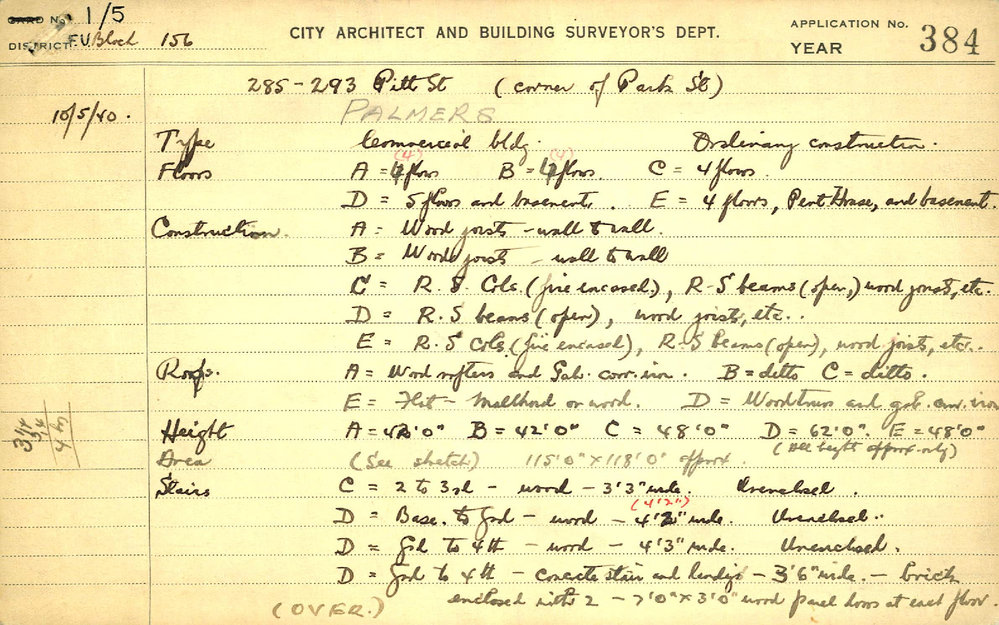 CARD No. 1/5
DISTRICT. F.U. Block 156
CITY ARCHITECT AND BUILDING SURVEYOR'S DEPT.
APPLICATION No.
YEAR
384
285-293 Pitt St (corner of Park St)
10/5/40.
PALMERS
Type Commercial bldg. Ordinary construction.
(4) (4)
Floors A = 4 floors B = 4 floors. C = 4 floors.
D = 5 floors and basement. E = 4 floors, Pent House, and basement.
Construction. A = Wood joists - wall to wall.
B = Wood joists - wall to wall
C = R.S. Cols. (fire encased.), R-S beams (open,) wood joists, etc.
D = R.S beams (open), wood joists, etc..
E = R.S Cols. (fire encased), R-S beams (open), wood joists, etc..
Roofs. A = Wood rafters and Galv. corr. iron. B = ditto C = ditto.
E = Flat - Malthoid on wood. D = Wood truss and galv. corr. iron
Height A = 42'0" B = 42'0" C = 48'0" D = 62'0". E = 48'0"
(All height approx. only)
Area (See sketch) 115'0" x 118'0" approx.
Stairs C = 2 to 3rd - wood - 3'3" wide. Unenclosed.
(4'2")
D = Base. to Grd - wood - 4'2" wide. Unenclosed..
D = Grd to 4th - wood - 4'3" wide. Unenclosed.
D = Grd to 4th - concrete stair and landings - 3'6" wide. - brick
enclosed with 2 - 7'0" x 3'0" wood panel doors at each floor.
(OVER.)